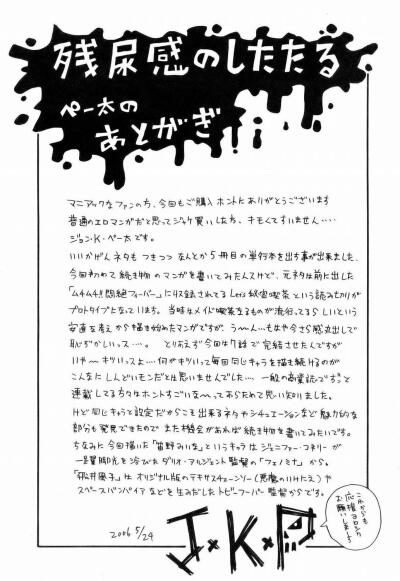 残尿感のしたたる
ペー太の
あとがき
マニアックなファンの方、今回もご購入ホントにありがとうございます
普通のエロマンガだと思ってジャケ買いした方、キモくてすいません・・・・
ジョン・K・ペー太です。
いいかげんネタもつきつつなんとか5冊目の単行本を出す事が出来ました、
今回初めて続き物のマンガを書いてみたんスけど、元ネタは前に出した
「ムチムチ!!悶絶フィーバー」に収録されてるLet's秘密喫茶という読み切りが
プロトタイプとなっています。当時はメイド喫茶なるものが流行ってるらしいという
安直な考えから描き始めたマンガですが、う〜〜ん・・・もはや今さら感丸出しで
恥ずかしいっス・・・・。とりあえず今回は7話で完結させたんですが
いや〜キツいっスよ・・・・何がキツいって毎回同じキャラを描き続けるのが
こんなにしんどいモンだとは思いませんでした・・・・一般の商業誌でずっと
連載してる方々はホントすごいな〜ってあらためて思い知りました。
けど同じキャラと設定だからこそ出来るネタやシチュエーションなど魅力的な
部分も発見できたのでまた機会があれば続き物を書いてみたいです。
ちなみに今回描いた「笛野みいな」というキャラはジェニファー・コネリーが
一躍脚光を浴びたダリオ・アルジェント監督の「フェノミナ」から。
「砥井風子」はオリジナル版のテキサスチェーンソー(悪魔のいけにえ)や
スペースバンパイアなどを生みだしたトビー・フーパー監督からです。
2006 5/24
J×K×P
これからも
応援ヨロシク
お願いします